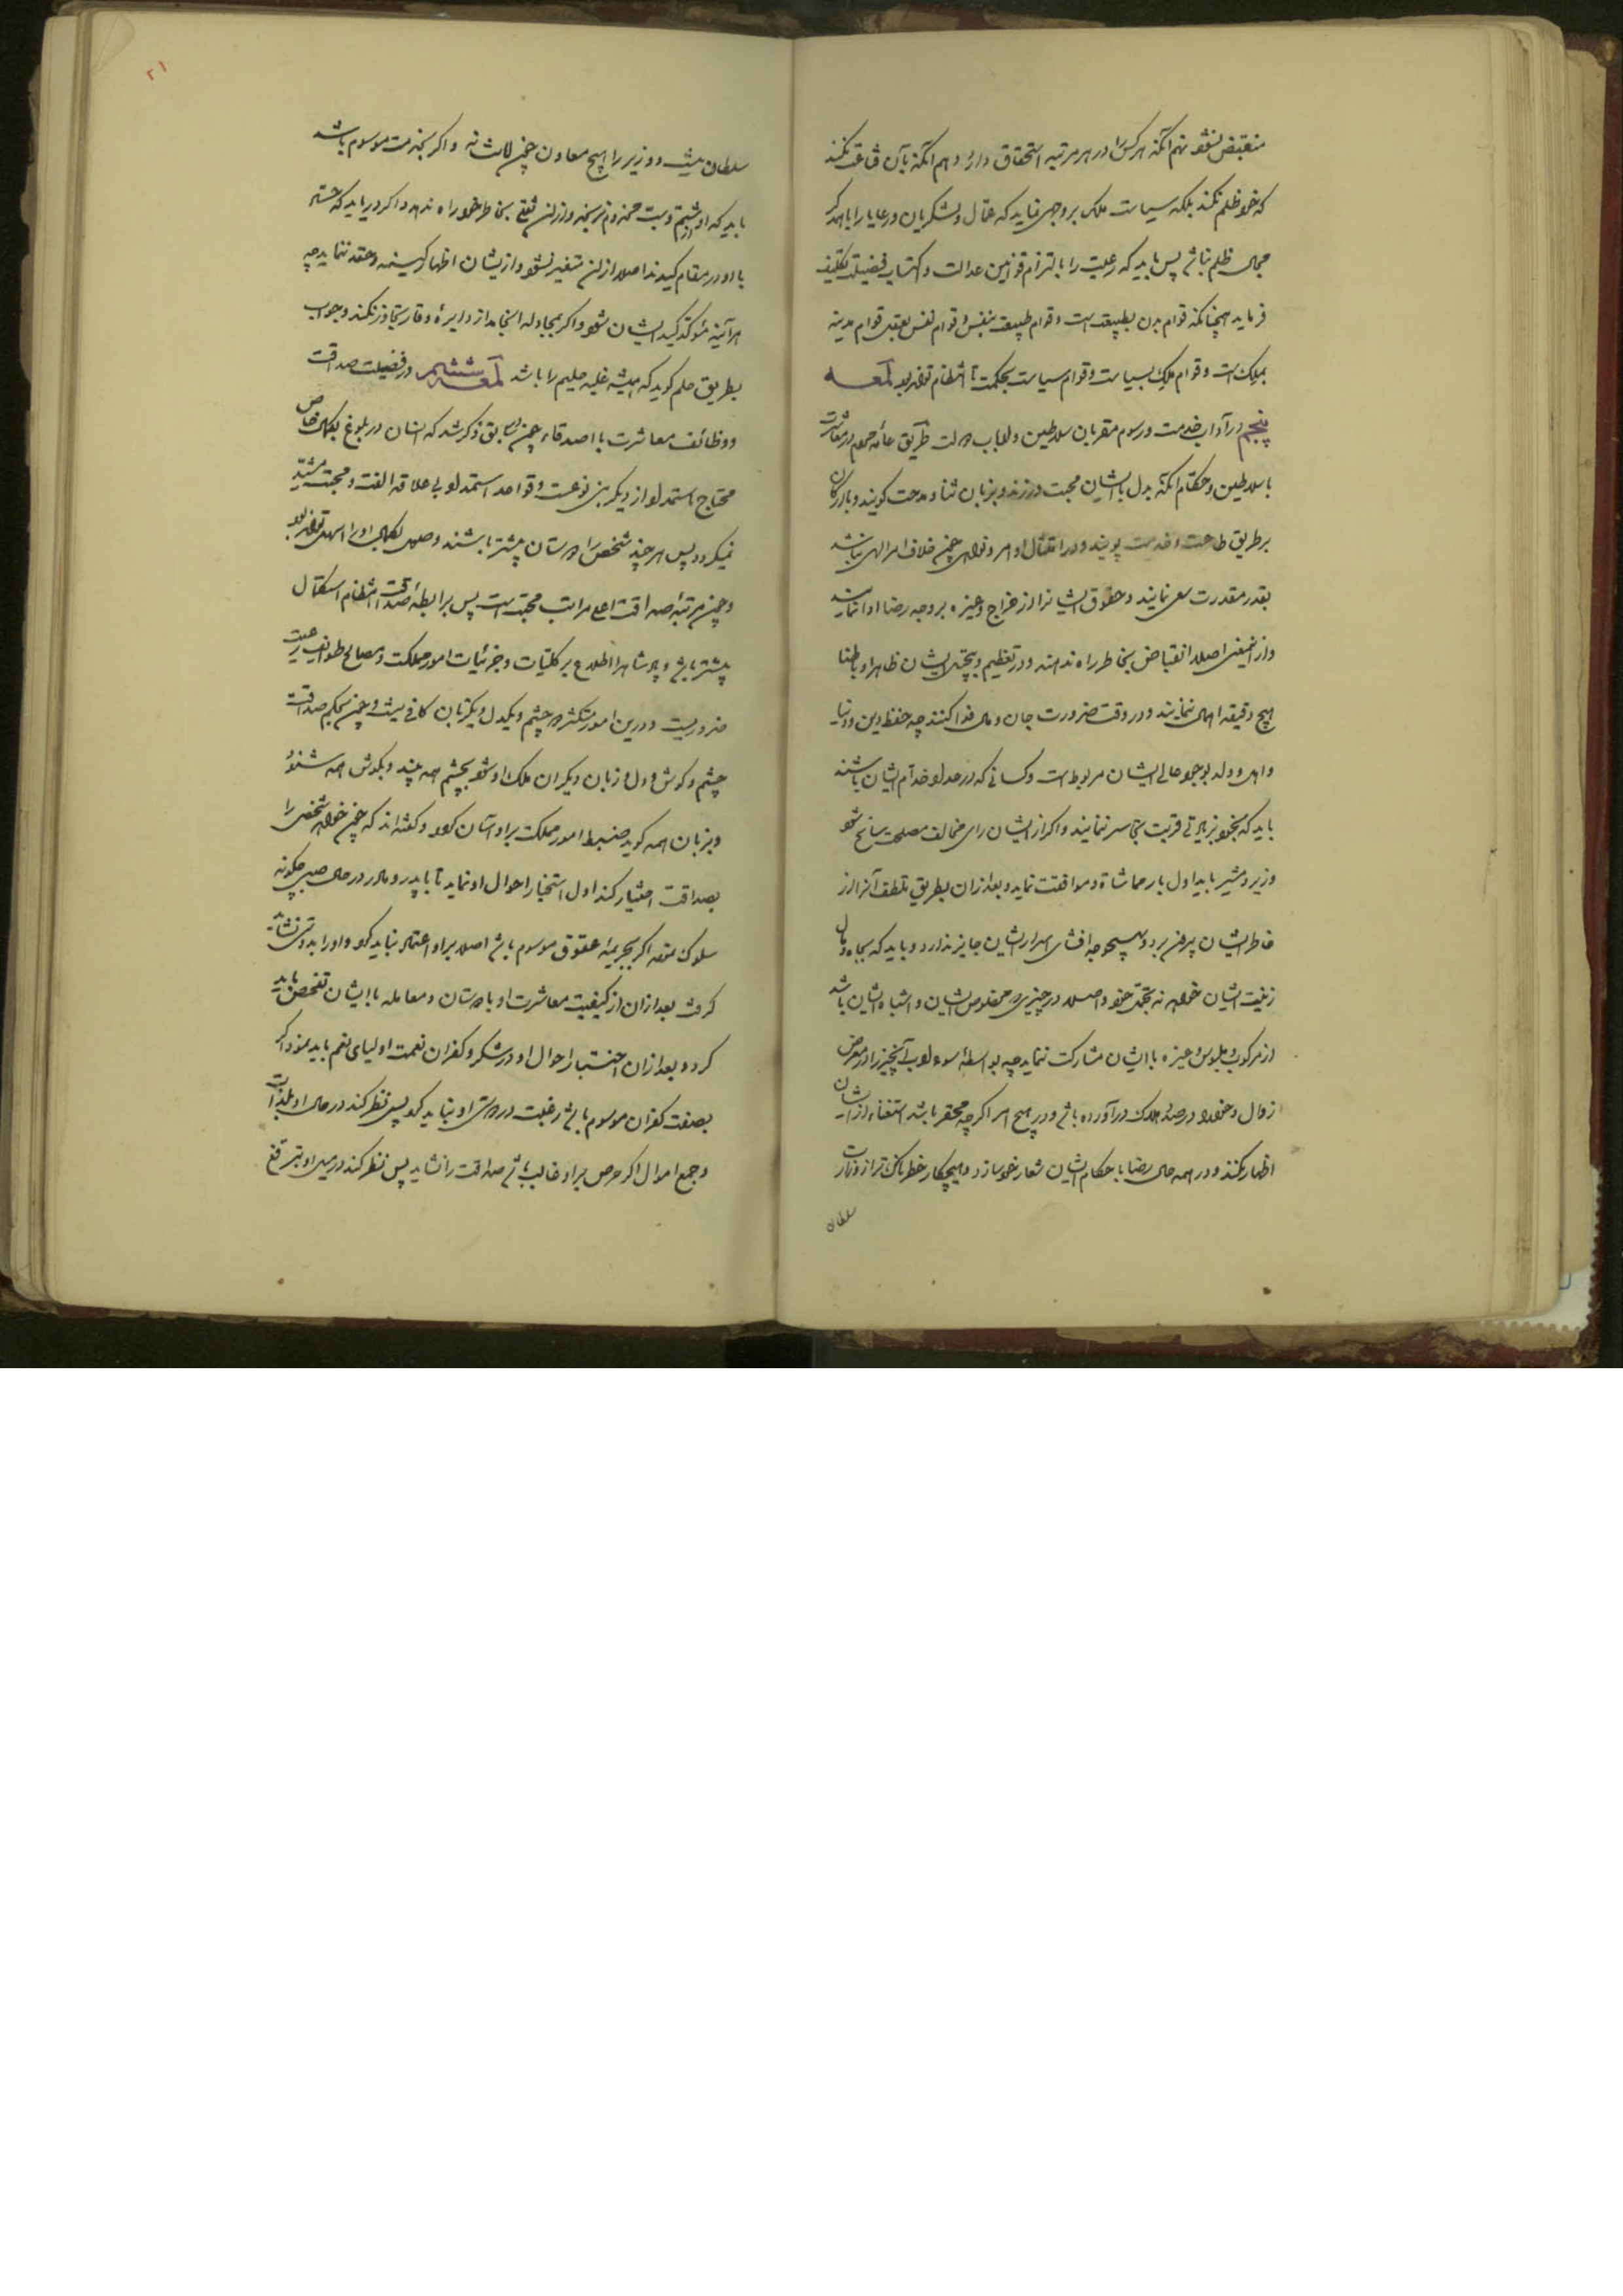 منقبض نشود نهم آنکه هر کس را در هر مرتبه استحقاق دارد دهم آنکه بآن قناعت نکند
که خود ظلم نکند بلکه سیاست ملک بر وجهی نماید که عمال و لشکریان و رعایا را با همدگر
مجال ظلم نباشد پس باید که رعیت را بالتزام قوانین عدالت و اکتساب فضیلت تکلیف
فرماید همچنانکه قوام بدن بطبیعت است و قوام طبیعت بنفس و قوام نفس بعقل قوام مدینه
بملک است و قوام ملک بسیاست و قوام سیاست بحکمت تا انتظام تواند بود لمعه
پنجم در آداب خدمت و رسوم مقربان سلاطین و ارباب دولت طریق عامه مردم در معاشرت
با سلاطین و حکام آنکه بدل با ایشان محبت ورزند و بزبان ثنا و مدحت گویند و بارکان
بر طریق طاعت و خدمت پویند و در امتثال اوامر و نواهی چون خلاف امر الهی نباشد
بقدر مقدرت سعی نمایند و حقوق ایشانرا از خراج و غیره بر وجه رضا ادا نمایند
و از اینمعنی اصلا انقباض بخاطر راه ندهند و در تعظیم و تبجیل ایشان ظاهرا و باطنا
هیچ دقیقه اهمال ننمایند و در وقت ضرورت جان و مال فدا کنند چه حفظ دین و دنیا
و اهل و ولد بوجود عالی ایشان مربوط است و کسانی که در عداد خدام ایشان باشند
باید که بخود بزیادتی قربت تجاسر ننمایند و اگر از ایشان رای مخالف مصلحت سانح شود
وزیر و مشیر باید اول بار مماشاة و موافقت نماید و بعد از آن بطریق تلطف آنرا از
خاطر ایشان بیرون برد و بهیچوجه افشای اسرار ایشان جایز ندارد و باید که بجاه و مال
زینت ایشان خواهد نه تجمل خود و اصلا در چیزی که مخصوص ایشان و اشباه ایشان باشد
از مرکوب و ملبوس و غیره با ایشان مشارکت ننماید چه بواسطه سوء ادب آنچیز را در معرض
زوال و خود را در صدد هلاک درآورده باشد و در هیچ امر اگرچه محقر باشد استغناء از ایشان
اظهار نکند و در همه حال رضا باحکام ایشان شعار خود سازد و هیچکار خطرناک تر از وزارت
سلطان
۲۱
سلطان نیست و وزیر را هیچ معاون چون امانت نه و اگر بخدمت موسوم باشد
باید که او شتم و سبت مخدوم نرنجد و از آن ثقلی بخاطر خود راه ندهد و اگر دریابد که حساد
با او در مقام کیدند اصلا از آن متغیر نشود و از ایشان اظهار کینه و حقد ننماید چه
هر آینه مؤکد کید ایشان شود و اگر بمجادله انجامد از دایره وقار تجاوز نکند و جواب
بطریق حلم گوید که همیشه غلبه حلیم را باشد لمعه ششم در فضیلت صداقت
و وظائف معاشرت با اصدقاء چون سابق ذکر شد که انسان در بلوغ بکمال خاص
محتاج استمداد از دیگر بنی نوعست و قواعد استمداد بی علاقه الفت و محبت مشید
نمیگردد پس هر چند شخص را دوستان بیشتر باشند وصول بکمال او را اسهل تواند بود
و چون مرتبه صداقت اعلی مراتب محبت است پس برابطه صداقت انتظام استکمال
بیشتر باشد و پادشاه را اطلاع بر کلیات و جزئیات امور مملکت و مصالح طوایف رعیت
ضروریست و درین امور متکثره چشم و یکدل و یکزبان کافی نیست و چون بحکم صداقت
چشم و گوش و دل و زبان دیگران ملک او شود بچشم همه بیند و بگوش همه شنود
و بزبان همه گوید ضبط امور مملکت بر او آسان گردد و گفته‌اند که چون خواهد شخصی را
بصداقت اختیار کند اول استخبار احوال او نماید تا با پدر و مادر در حال صبی چگونه
سلوک نموده اگر بجریمه عقوق موسوم باشد اصلا بر او اعتماد نباید کرد و او را بدوستی نشاید
گرفت بعد از آن از کیفیت معاشرت او با دوستان و معامله با ایشان تفحص باید
کرد و بعد از آن اختبار احوال او در شکر و کفران نعمت اولیای نعم باید نمود اگر
بصفت کفران موسوم باشد رغبت در دوستی او نباید کرد پس نظر کند در حال او بلذات
و جمع اموال اگر حرص بر او غالب باشد صداقت را نشاید پس نظر کند در میل او بترفع